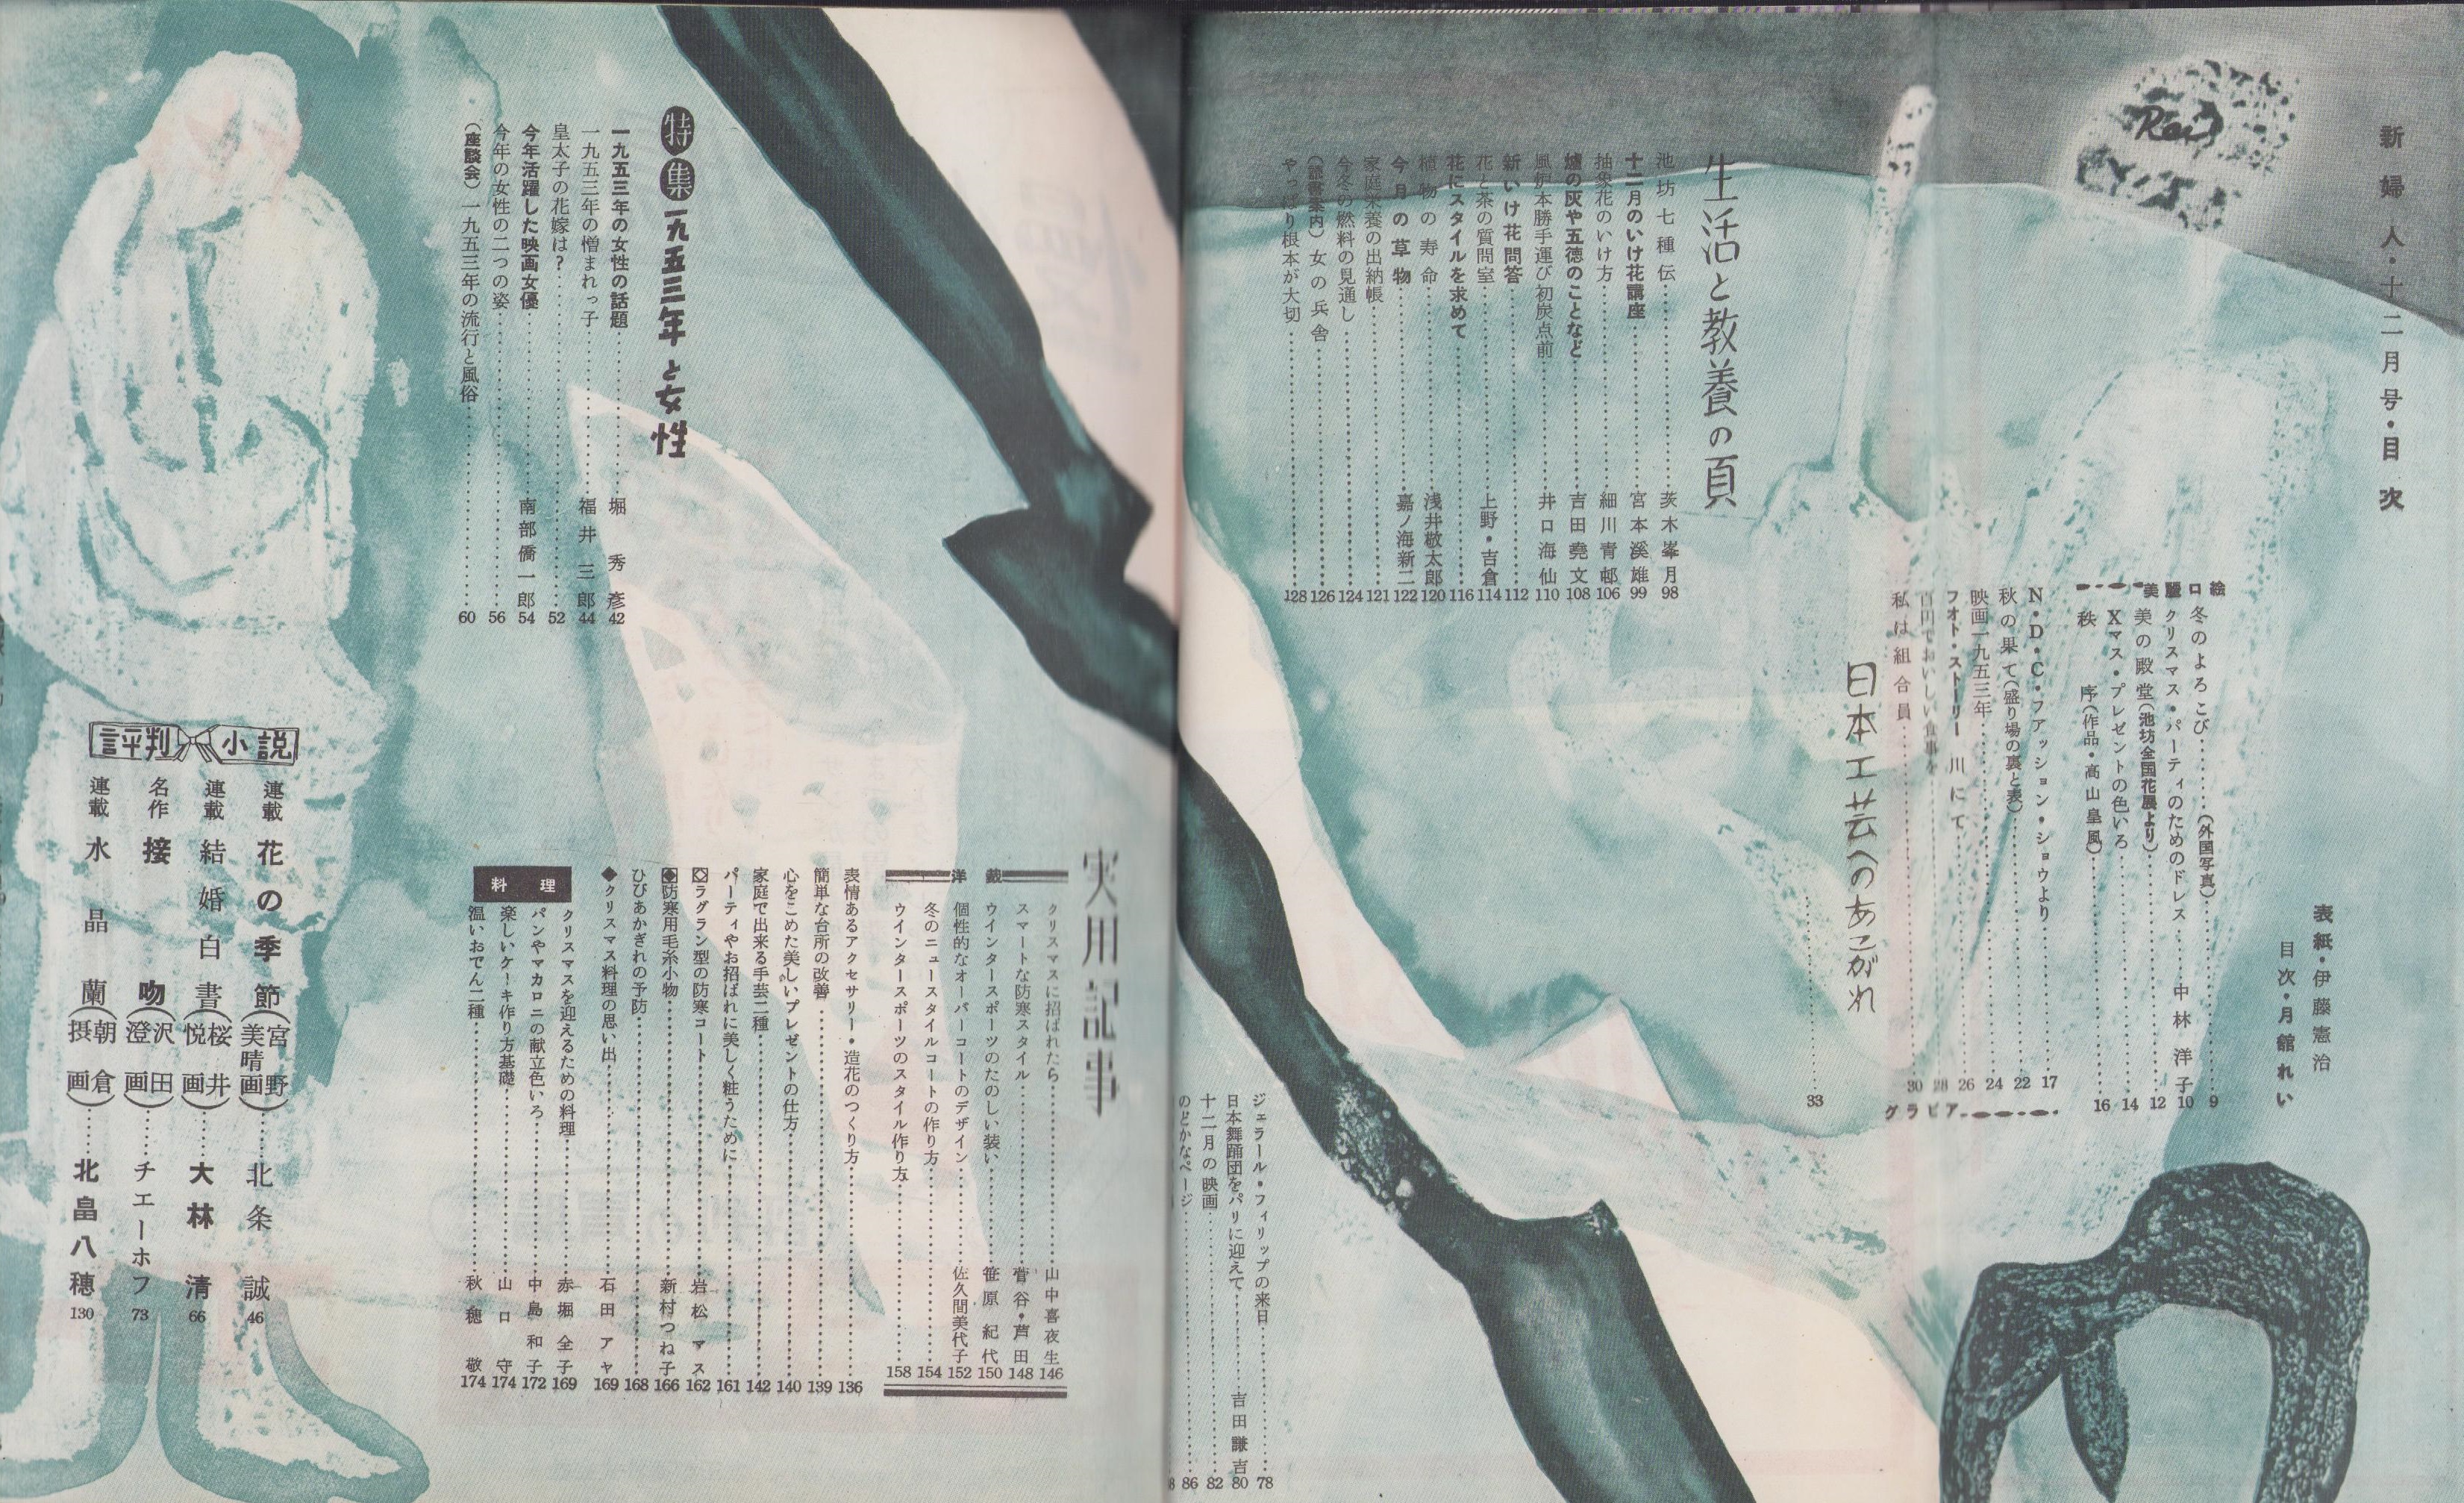 新婦人・十二月号・目次
表紙・伊藤憲治
目次・月舘れい
口絵
冬のよろこび……(外国写真)……9
クリスマス・パーティのためのドレス……中林洋子 10
美の殿堂(池坊全国花展より)……12
Xマス・プレゼントの色いろ……14
秩序(作品・高山皇風)……16
美麗
N・D・C・フアッション・ショウより……17
秋の果て(盛り場の裏と表)……22
映画一九五三年……24
フオト・ストーリー 川にて……26
百円でおいしい食事を……28
私は組合員……30
グラビア
日本工芸へのあこがれ……33
生活と教養の頁
池坊七種伝……茨木峯月 98
十二月のいけ花講座……宮本溪雄 99
抽象花のいけ方……細川青邨 106
爐の灰や五徳のことなど……吉田堯文 108
風炉本勝手運び初炭点前……井口海仙 110
新いけ花問答……112
花と茶の質問室……上野・吉倉 114
花にスタイルを求めて……116
植物の寿命……浅井敬太郎 120
今月の草物……嘉ノ海新二 122
家庭栄養の出納帳……121
今冬の燃料の見通し……124
(読書案内)女の兵舎……126
やっぱり根本が大切……128
ジェラール・フィリップの来日……78
日本舞踊団をパリに迎えて……吉田謙吉 80
十二月の映画……82
のどかなページ……86
特集 一九五三年と女性
一九五三年の女性の話題……堀秀彦 42
一九五三年の憎まれっ子……福井三郎 44
皇太子の花嫁は?……52
今年活躍した映画女優……南部僑一郎 54
今年の女性の二つの姿……56
(座談会)一九五三年の流行と風俗……60
実用記事
洋裁
クリスマスに招ばれたら……山中喜夜生 146
スマートな防寒スタイル……菅谷・芦田 148
ウインタースポーツのたのしい装い……笹原紀代 150
個性的なオーバーコートのデザイン……佐久間美代子 152
冬のニュースタイルコートの作り方……154
ウインタースポーツのスタイル作り方……158
表情あるアクセサリー・造花のつくり方……136
簡単な台所の改善……139
心をこめた美しいプレゼントの仕方……140
家庭で出来る手芸二種……142
パーティやお招ばれに美しく粧うために……161
ラグラン型の防寒コート……岩松マス 162
防寒用毛糸小物……新村つね子 166
ひびあかぎれの予防……168
◆クリスマス料理の思い出……石田アヤ 169
料理
クリスマスを迎えるための料理……赤堀全子 169
パンやマカロニの献立色いろ……中島和子 172
楽しいケーキ作り方基礎……山口守 174
温いおでん二種……秋穂敬 174
評判小説
連載 花の季節(宮野美晴画)……北条誠 46
連載 結婚白書(桜井悦画)……大林清 66
名作 接吻(沢田澄画)……チエーホフ 73
連載 水晶蘭(朝倉摂画)……北畠八穂 130